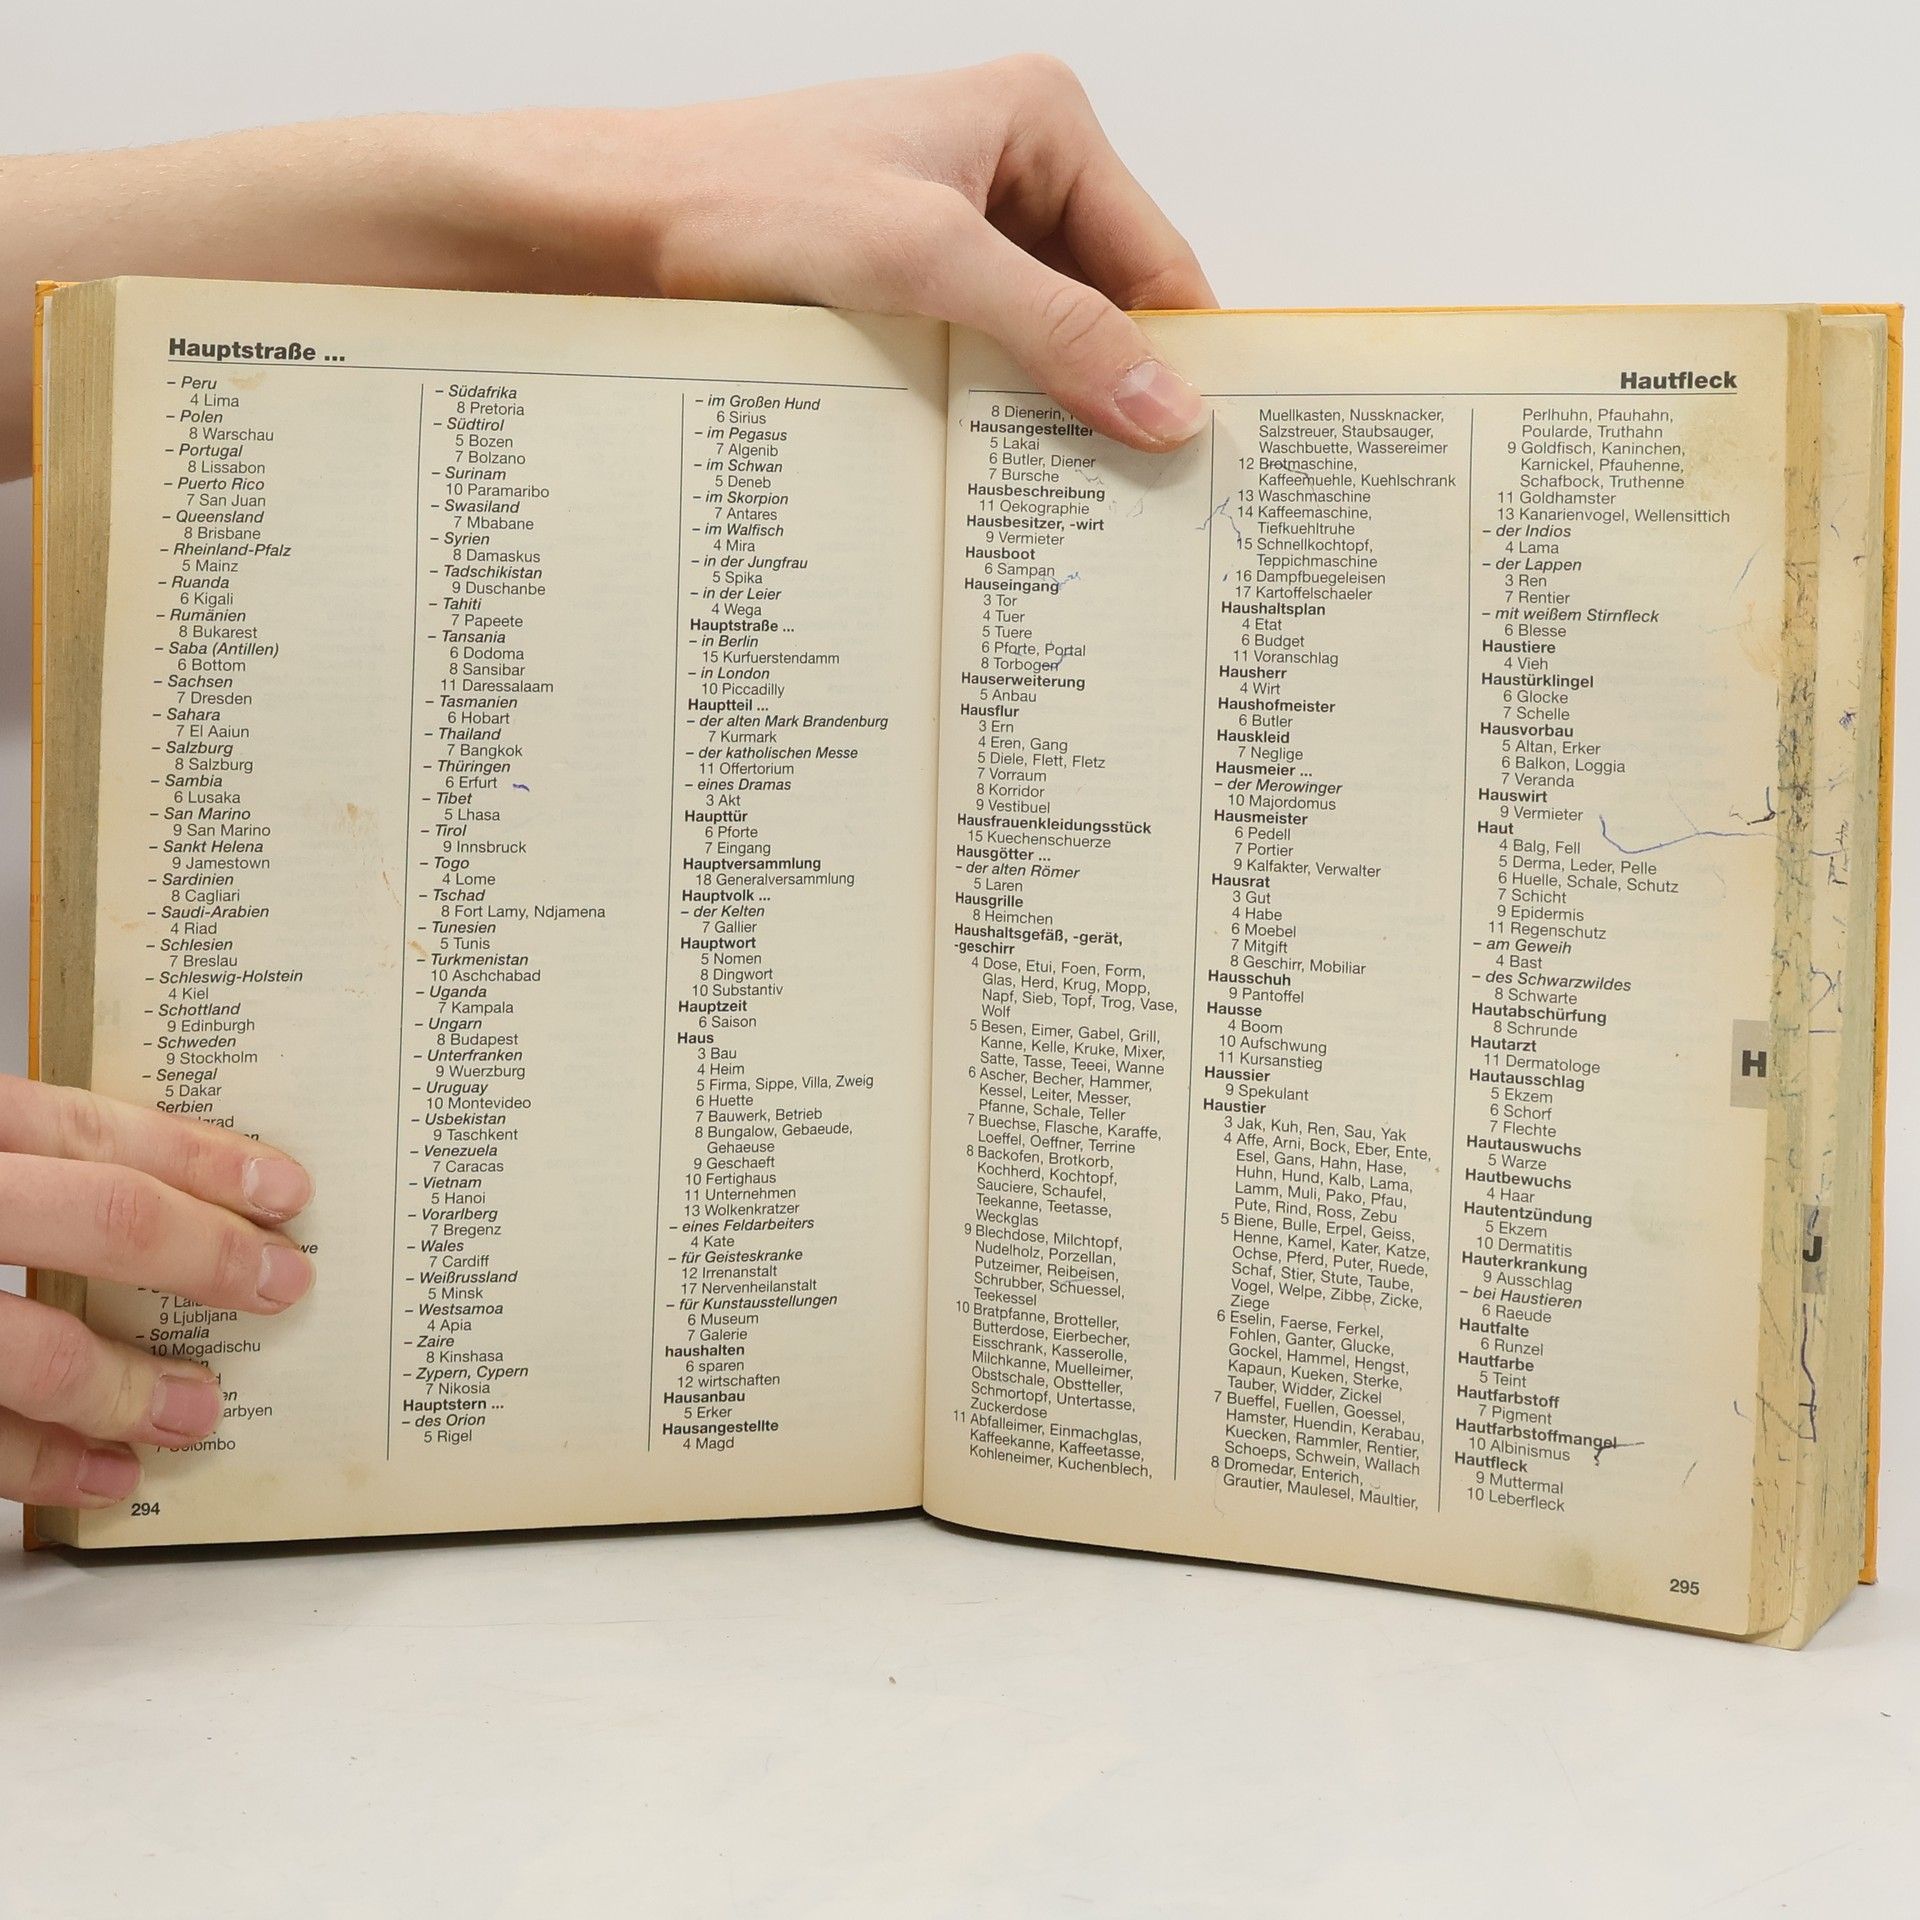 Hauptstraße ...
– Peru
4 Lima
– Polen
8 Warschau
– Portugal
8 Lissabon
– Puerto Rico
7 San Juan
– Queensland
8 Brisbane
– Rheinland-Pfalz
5 Mainz
– Ruanda
6 Kigali
– Rumänien
8 Bukarest
– Saba (Antillen)
6 Bottom
– Sachsen
7 Dresden
– Sahara
7 El Aaiun
– Salzburg
8 Salzburg
– Sambia
6 Lusaka
– San Marino
9 San Marino
– Sankt Helena
9 Jamestown
– Sardinien
8 Cagliari
– Saudi-Arabien
4 Riad
– Schlesien
7 Breslau
– Schleswig-Holstein
4 Kiel
– Schottland
9 Edinburgh
– Schweden
9 Stockholm
– Senegal
5 Dakar
Serbien
9 Ljubljana
– Somalia
10 Mogadischu
294
– Südafrika
8 Pretoria
– Südtirol
5 Bozen
7 Bolzano
– Surinam
10 Paramaribo
– Swasiland
7 Mbabane
– Syrien
8 Damaskus
– Tadschikistan
9 Duschanbe
– Tahiti
7 Papeete
– Tansania
6 Dodoma
8 Sansibar
11 Daressalaam
– Tasmanien
6 Hobart
– Thailand
7 Bangkok
– Thüringen
6 Erfurt
– Tibet
5 Lhasa
– Tirol
9 Innsbruck
– Togo
4 Lome
– Tschad
8 Fort Lamy, Ndjamena
– Tunesien
5 Tunis
– Turkmenistan
10 Aschchabad
– Uganda
7 Kampala
– Ungarn
8 Budapest
– Unterfranken
9 Wuerzburg
– Uruguay
10 Montevideo
– Usbekistan
9 Taschkent
– Venezuela
7 Caracas
– Vietnam
5 Hanoi
– Vorarlberg
7 Bregenz
– Wales
7 Cardiff
– Weißrussland
5 Minsk
– Westsamoa
4 Apia
– Zaire
8 Kinshasa
– Zypern, Cypern
7 Nikosia
Hauptstern ...
– des Orion
5 Rigel
– im Großen Hund
6 Sirius
– im Pegasus
7 Algenib
– im Schwan
5 Deneb
– im Skorpion
7 Antares
– im Walfisch
4 Mira
– in der Jungfrau
5 Spika
– in der Leier
4 Wega
Hauptstraße ...
– in Berlin
15 Kurfuerstendamm
– in London
10 Piccadilly
Hauptteil ...
– der alten Mark Brandenburg
7 Kurmark
– der katholischen Messe
11 Offertorium
– eines Dramas
3 Akt
Haupttür
6 Pforte
7 Eingang
Hauptversammlung
18 Generalversammlung
Hauptvolk ...
– der Kelten
7 Gallier
Hauptwort
5 Nomen
8 Dingwort
10 Substantiv
Hauptzeit
6 Saison
Haus
3 Bau
4 Heim
5 Firma, Sippe, Villa, Zweig
6 Huette
7 Bauwerk, Betrieb
8 Bungalow, Gebaeude,
Gehaeuse
9 Geschaeft
10 Fertighaus
11 Unternehmen
13 Wolkenkratzer
– eines Feldarbeiters
4 Kate
– für Geisteskranke
12 Irrenanstalt
17 Nervenheilanstalt
– für Kunstausstellungen
6 Museum
7 Galerie
haushalten
6 sparen
12 wirtschaften
Hausanbau
5 Erker
Hausangestellte
4 Magd
Hautfleck
8 Dienerin,
Hausangestellter
5 Lakai
6 Butler, Diener
7 Bursche
Hausbeschreibung
11 Oekographie
Hausbesitzer, -wirt
9 Vermieter
Hausboot
6 Sampan
Hauseingang
3 Tor
4 Tuer
5 Tuere
6 Pforte, Portal
8 Torbogen
Hauserweiterung
5 Anbau
Hausflur
3 Ern
4 Eren, Gang
5 Diele, Flett, Fletz
7 Vorraum
8 Korridor
9 Vestibuel
Hausfrauenkleidungsstück
15 Kuechenschuerze
Hausgötter ...
– der alten Römer
5 Laren
Hausgrille
8 Heimchen
Haushaltsgefäß, -gerät,
-geschirr
4 Dose, Etui, Foen, Form,
Glas, Herd, Krug, Mopp,
Napf, Sieb, Topf, Trog, Vase,
Wolf
5 Besen, Eimer, Gabel, Grill,
Kanne, Kelle, Kruke, Mixer,
Satte, Tasse, Teeei, Wanne
6 Ascher, Becher, Hammer,
Kessel, Leiter, Messer,
Pfanne, Schale, Teller
7 Buechse, Flasche, Karaffe,
Loeffel, Oeffner, Terrine
8 Backofen, Brotkorb,
Kochherd, Kochtopf,
Sauciere, Schaufel,
Teekanne, Teetasse,
Weckglas
9 Blechdose, Milchtopf,
Nudelholz, Porzellan,
Putzeimer, Reibeisen,
Schrubber, Schuessel,
Teekessel
10 Bratpfanne, Brotteller,
Butterdose, Eierbecher,
Eisschrank, Kasserolle,
Milchkanne, Muelleimer,
Obstschale, Obstteller,
Schmortopf, Untertasse,
Zuckerdose
11 Abfalleimer, Einmachglas,
Kaffeekanne, Kaffeetasse,
Kohleneimer, Kuchenblech,
Muellkasten, Nussknacker,
Salzstreuer, Staubsauger,
Waschbuette, Wassereimer
12 Brotmaschine,
Kaffeemuehle, Kuehlschrank
13 Waschmaschine
14 Kaffeemaschine,
Tiefkuehltruhe
15 Schnellkochtopf,
Teppichmaschine
16 Dampfbuegeleisen
17 Kartoffelschaeler
Haushaltsplan
4 Etat
6 Budget
11 Voranschlag
Hausherr
4 Wirt
Haushofmeister
6 Butler
Hauskleid
7 Neglige
Hausmeier ...
– der Merowinger
10 Majordomus
Hausmeister
6 Pedell
7 Portier
9 Kalfakter, Verwalter
Hausrat
3 Gut
4 Habe
6 Moebel
7 Mitgift
8 Geschirr, Mobiliar
Hausschuh
9 Pantoffel
Hausse
4 Boom
10 Aufschwung
11 Kursanstieg
Haussier
9 Spekulant
Haustier
3 Jak, Kuh, Ren, Sau, Yak
4 Affe, Arni, Bock, Eber, Ente,
Esel, Gans, Hahn, Hase,
Huhn, Hund, Kalb, Lama,
Lamm, Muli, Pako, Pfau,
Pute, Rind, Ross, Zebu
5 Biene, Bulle, Erpel, Geiss,
Henne, Kamel, Kater, Katze,
Ochse, Pferd, Puter, Ruede,
Schaf, Stier, Stute, Taube,
Vogel, Welpe, Zibbe, Zicke,
Ziege
6 Eselin, Faerse, Ferkel,
Fohlen, Ganter, Glucke,
Gockel, Hammel, Hengst,
Kapaun, Kueken, Sterke,
Tauber, Widder, Zickel
7 Bueffel, Fuellen, Goessel,
Hamster, Huendin, Kerabau,
Kuecken, Rammler, Rentier,
Schoeps, Schwein, Wallach
8 Dromedar, Enterich,
Grautier, Maulesel, Maultier,
Perlhuhn, Pfauhahn,
Poularde, Truthahn
9 Goldfisch, Kaninchen,
Karnickel, Pfauhenne,
Schafbock, Truthenne
11 Goldhamster
13 Kanarienvogel, Wellensittich
– der Indios
4 Lama
– der Lappen
3 Ren
7 Rentier
– mit weißem Stirnfleck
6 Blesse
Haustiere
4 Vieh
Haustürklingel
6 Glocke
7 Schelle
Hausvorbau
5 Altan, Erker
6 Balkon, Loggia
7 Veranda
Hauswirt
9 Vermieter
Haut
4 Balg, Fell
5 Derma, Leder, Pelle
6 Huelle, Schale, Schutz
7 Schicht
9 Epidermis
11 Regenschutz
– am Geweih
4 Bast
– des Schwarzwildes
8 Schwarte
Hautabschürfung
8 Schrunde
Hautarzt
11 Dermatologe
Hautausschlag
5 Ekzem
6 Schorf
7 Flechte
Hautauswuchs
5 Warze
Hautbewuchs
4 Haar
Hautentzündung
5 Ekzem
10 Dermatitis
Hauterkrankung
9 Ausschlag
– bei Haustieren
6 Raeude
Hautfalte
6 Runzel
Hautfarbe
5 Teint
Hautfarbstoff
7 Pigment
Hautfarbstoffmangel
10 Albinismus
Hautfleck
9 Muttermal
10 Leberfleck
295
H
J